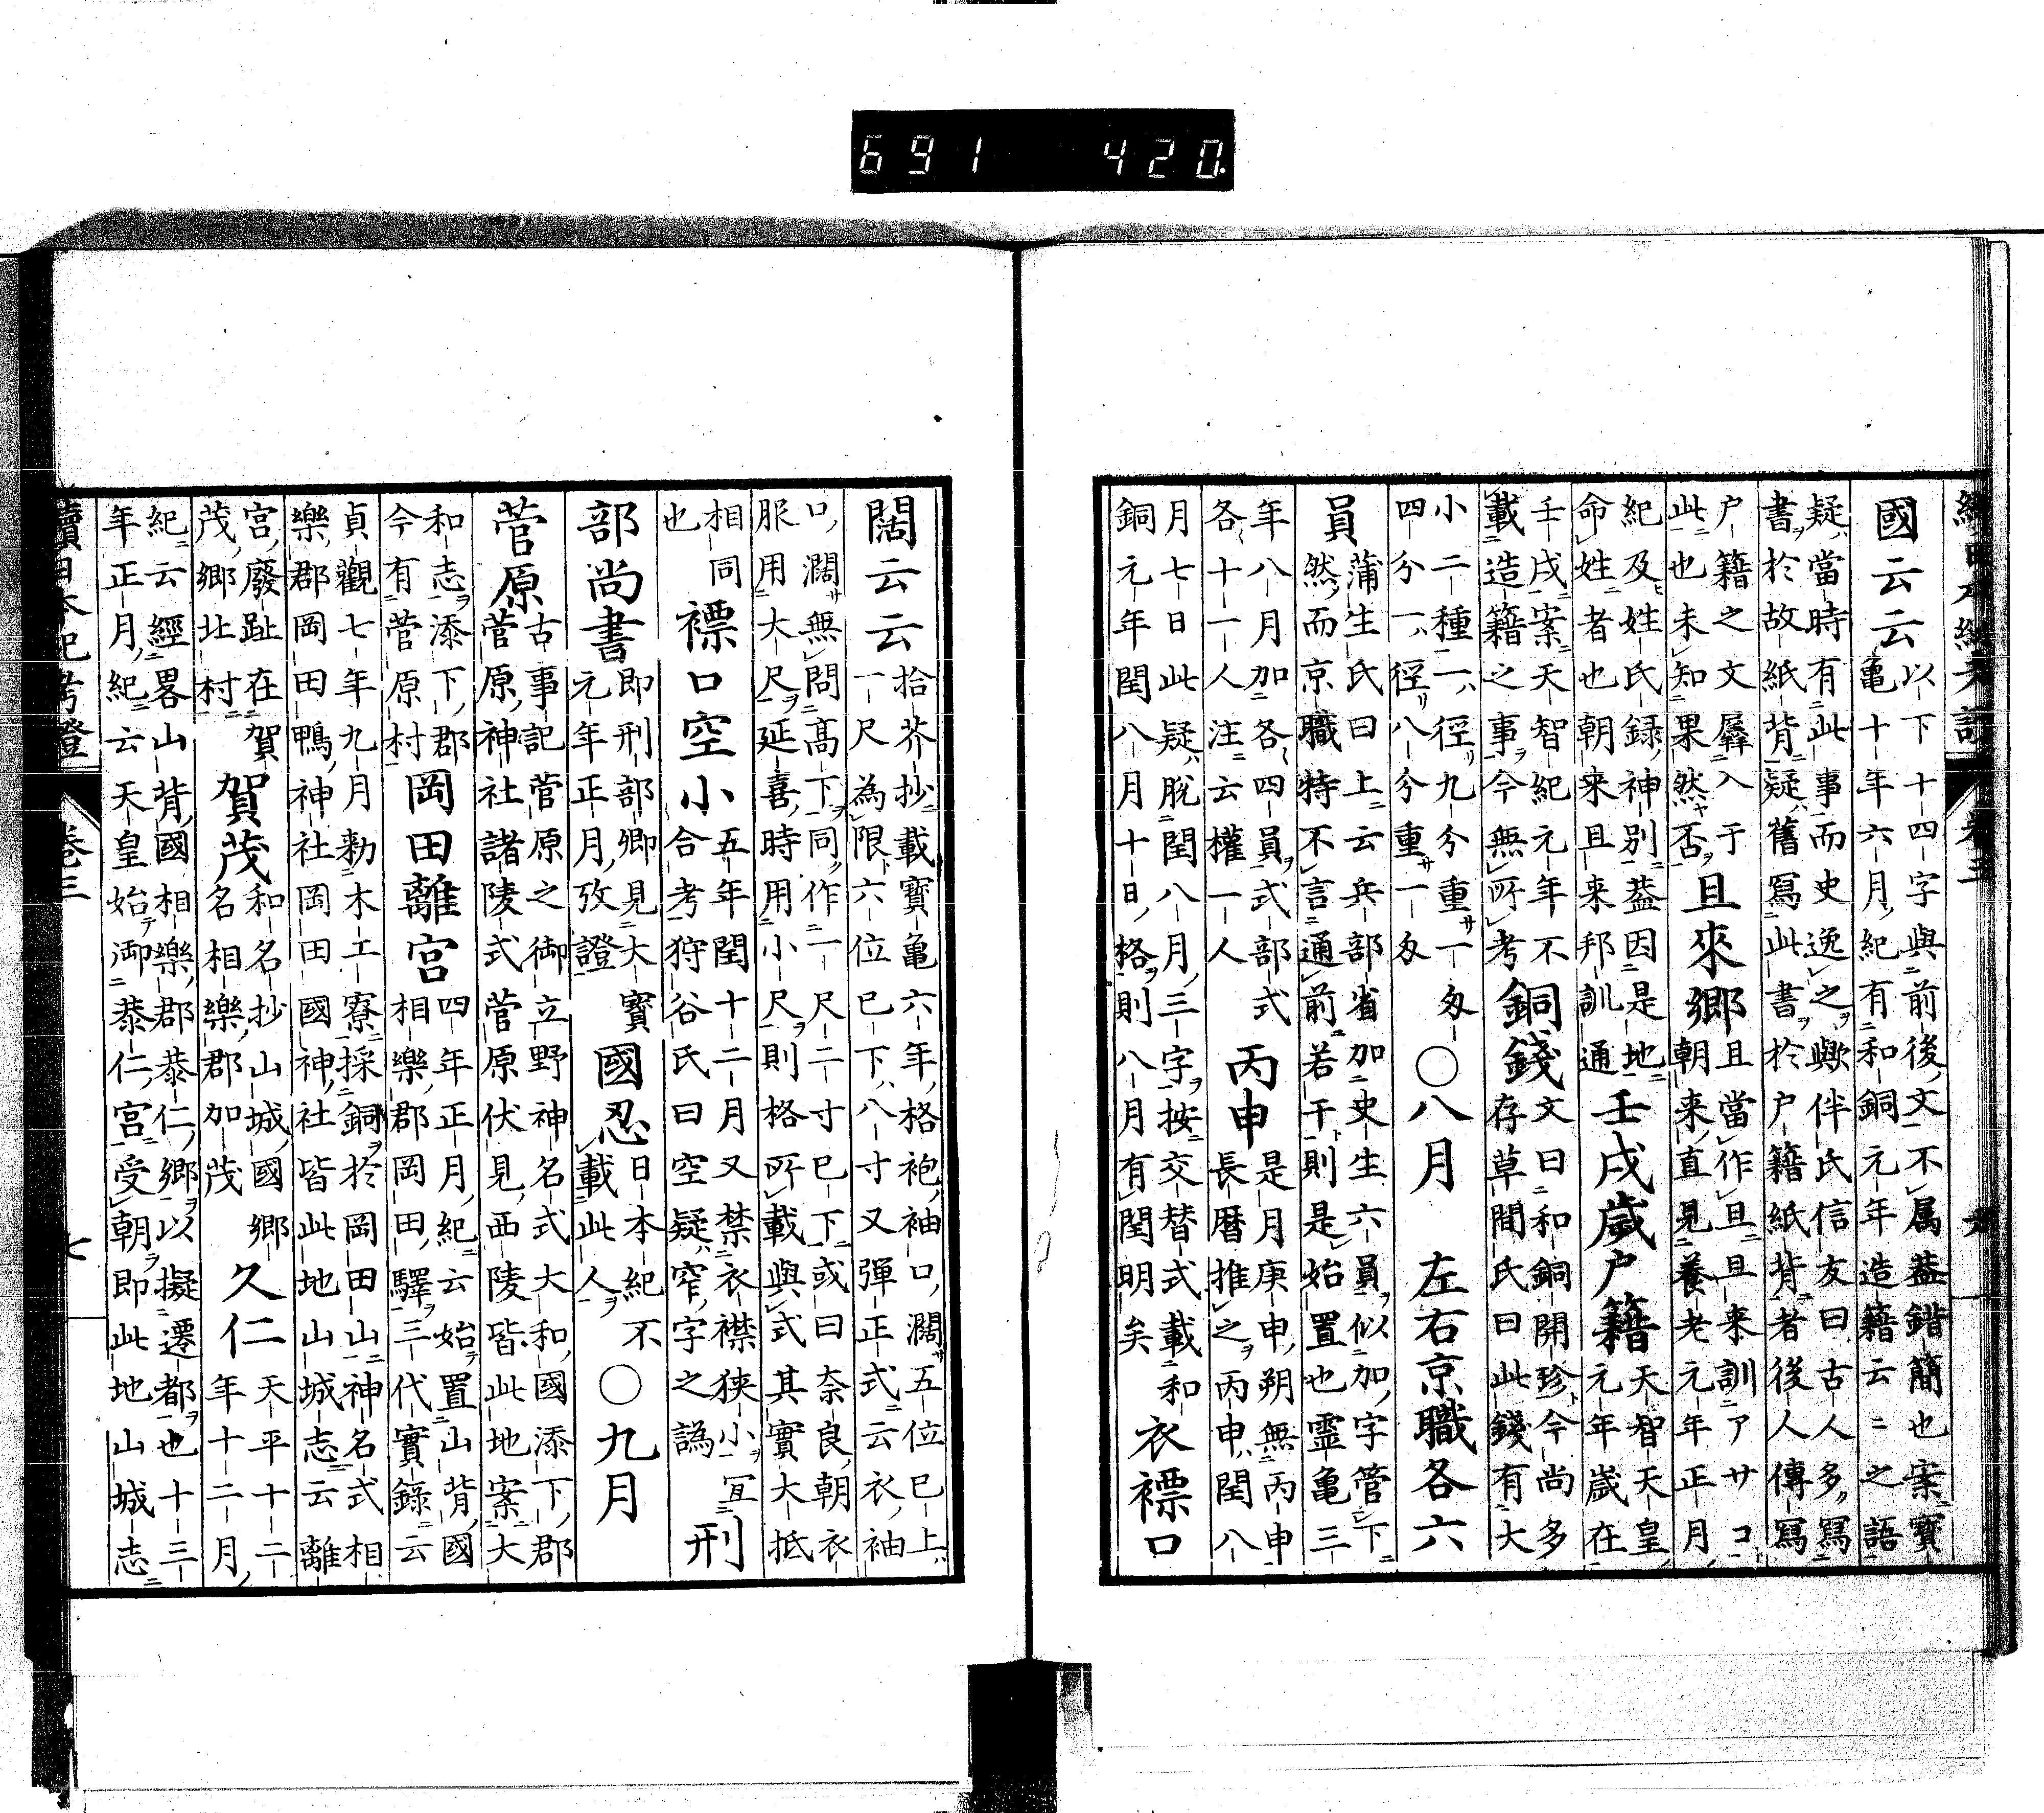 691 420
國云云 以下十四字與前後文不属葢錯簡也案寳
亀十年六月紀有和銅元年造籍云ニ之語
疑當時有此事而史逸之歟伴氏信友曰古人多寫
書於故紙背疑舊寫此書於户籍紙背者後人傳寫
户籍之文羼入于
此也未知果然否
且來鄉 且當作旦旦来訓アサコ
朝来直見養老元年正月
紀及姓氏録神别葢因是地
命姓者也朝来且来邦訓通
壬戌歳户籍 天智天皇
元年歳在
壬戌案天智紀元年不
載造籍之事今無所考
銅錢 文曰和銅開珍今尚多
存草間氏曰此錢有大
小二種一径九分重一匁
四分一径八分重一匁
○八月 左右京職各六
員 蒲生氏曰上云兵部省加史生六員似加字管下
然而京職特不言通前若干則是始置也霊亀三
年八月加各四員式部式
各十一人注云權一人
丙申 是月庚申朔無丙申
長暦推之丙申閏八
月七日此疑脱閏八月三字按交替式載和
銅元年閏八月十日格則八月有閏明矣
衣褾口
闊云云 拾芥抄載寳亀六年格袍袖口濶五位已上
一尺為限六位已下八寸又弾正式云衣袖
口濶無問髙下同作一尺二寸已下或曰奈良朝衣
服用大尺延喜時用小尺則格所載與式其實大抵
相同
也
褾口空小 五年閏十二月又禁衣襟狭小冝
合考狩谷氏曰空疑窄字之譌
刑
部尚書 即刑部卿見大寳
元年正月攷證
國忍 日本紀不
載此人
○九月
菅原 古事記菅原之御立野神名式大和國添下郡
菅原神社諸陵式菅原伏見西陵皆此地案大
和志添下郡
今有菅原村
岡田離宮 四年正月紀云始置山背國
相樂郡岡田驛三代實錄云
貞觀七年九月勅木工寮採銅於岡田山神名式相
樂郡岡田鴨神社岡田國神社皆此地山城志云離
宮廢趾在賀
茂鄉北村
賀茂 和名抄山城國
名相樂郡加茂鄉
久仁 天平十二
年十二月
紀云經畧山背國相樂郡恭仁鄉以擬遷都也十三
年正月紀云天皇始御恭仁宮受朝即此地山城志
續日本紀考證 卷三 七